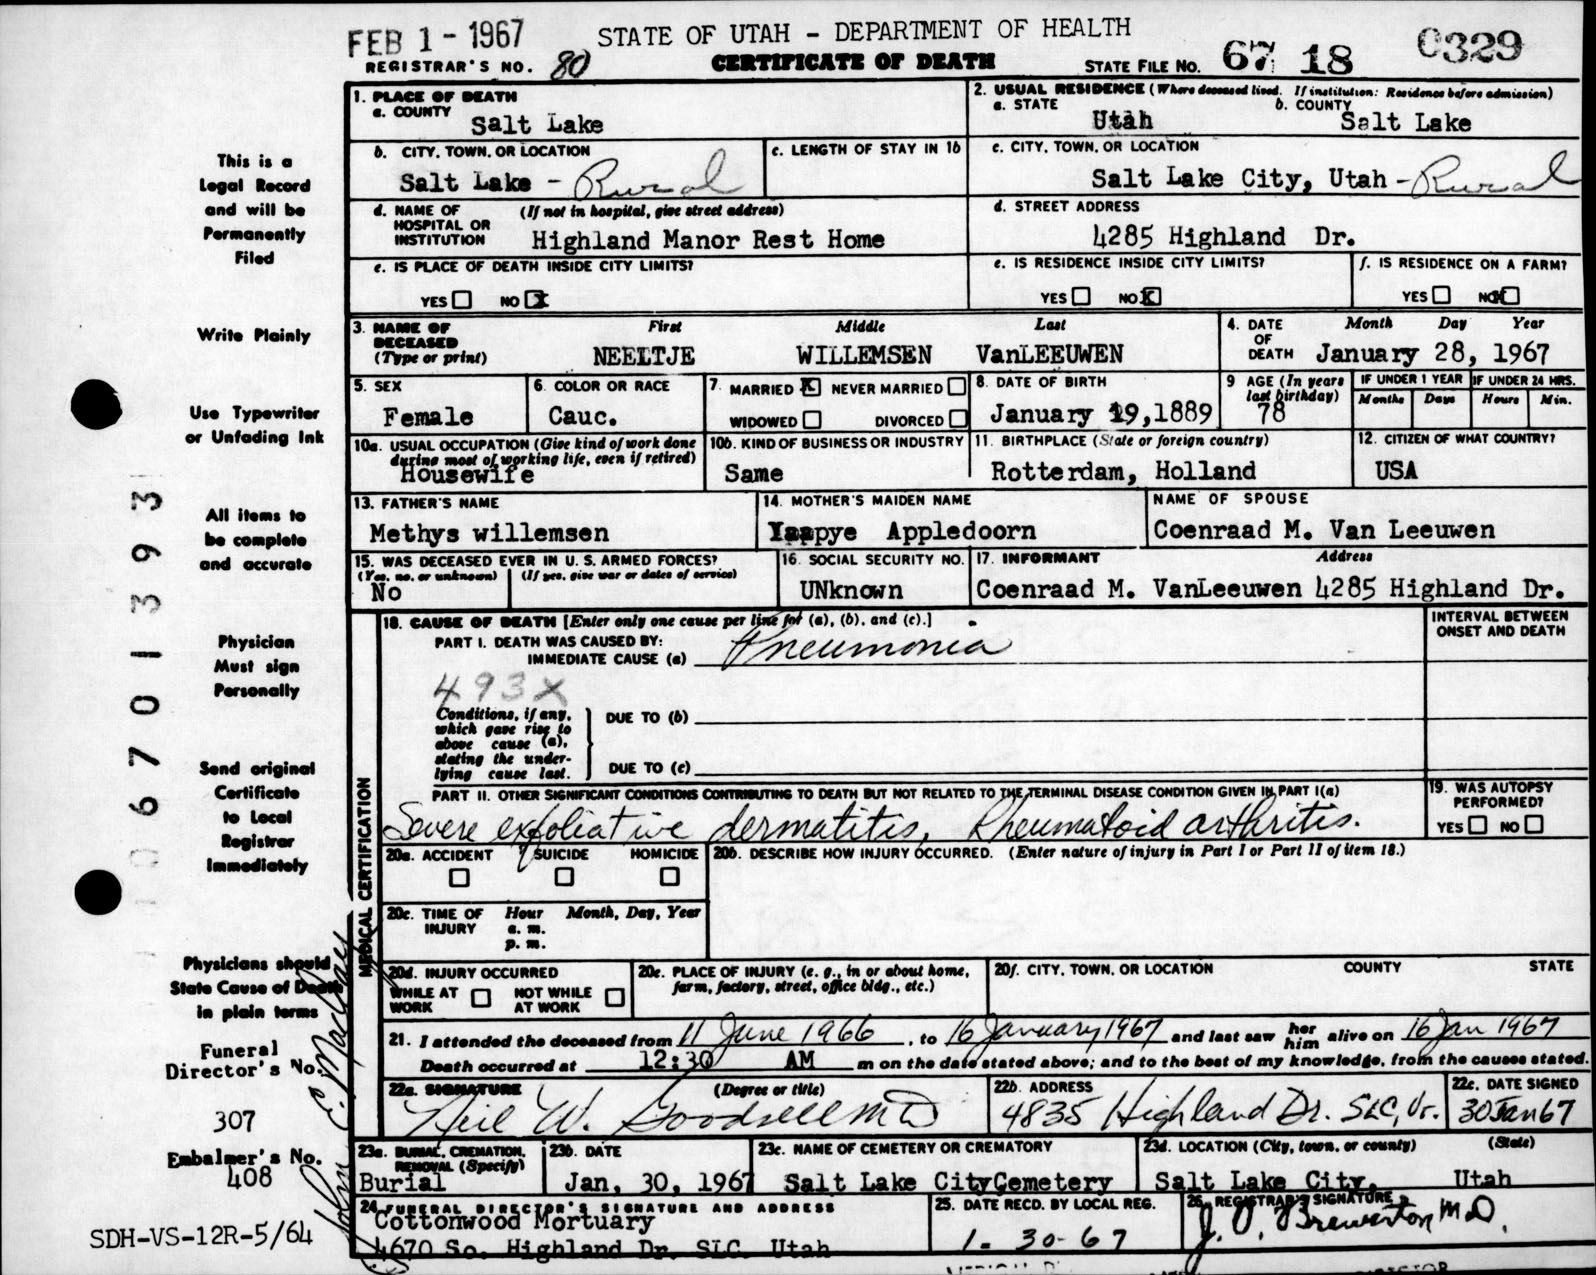 FEB 1 - 1967
STATE OF UTAH - DEPARTMENT OF HEALTH
CERTIFICATE OF DEATH
REGISTRAR'S NO. 80
STATE FILE NO. 67 18 0329
1. PLACE OF DEATH
a. COUNTY Salt Lake
2. USUAL RESIDENCE (Where deceased lived. If institution: Residence before admission)
a. STATE Utah b. COUNTY Salt Lake
b. CITY, TOWN, OR LOCATION Salt Lake - Rural
c. LENGTH OF STAY IN 1b
c. CITY, TOWN, OR LOCATION Salt Lake City, Utah - Rural
d. NAME OF HOSPITAL OR INSTITUTION (If not in hospital, give street address) Highland Manor Rest Home
d. STREET ADDRESS 4285 Highland Dr.
e. IS PLACE OF DEATH INSIDE CITY LIMITS?
YES NO X
e. IS RESIDENCE INSIDE CITY LIMITS?
YES NO X
f. IS RESIDENCE ON A FARM?
YES NO X
3. NAME OF DECEASED (Type or print)
First Middle Last
NEELTJE WILLEMSEN VanLEEUWEN
4. DATE OF DEATH Month Day Year
January 28, 1967
5. SEX Female
6. COLOR OR RACE Cauc.
7. MARRIED X NEVER MARRIED
WIDOWED DIVORCED
8. DATE OF BIRTH January 19,1889
9 AGE (In years last birthday) 78
IF UNDER 1 YEAR Months Days
IF UNDER 24 HRS. Hours Min.
10a. USUAL OCCUPATION (Give kind of work done during most of working life, even if retired) Housewife
10b. KIND OF BUSINESS OR INDUSTRY Same
11. BIRTHPLACE (State or foreign country) Rotterdam, Holland
12. CITIZEN OF WHAT COUNTRY? USA
13. FATHER'S NAME Methys willemsen
14. MOTHER'S MAIDEN NAME Yaapye Appledoorn
NAME OF SPOUSE Coenraad M. Van Leeuwen
15. WAS DECEASED EVER IN U. S. ARMED FORCES?
(Yes, no, or unknown) (If yes, give war or dates of service)
No
16. SOCIAL SECURITY NO. UNknown
17. INFORMANT Address
Coenraad M. VanLeeuwen 4285 Highland Dr.
18. CAUSE OF DEATH [Enter only one cause per line for (a), (b), and (c).]
INTERVAL BETWEEN ONSET AND DEATH
PART I. DEATH WAS CAUSED BY:
IMMEDIATE CAUSE (a) Pneumonia
493X
Conditions, if any, which gave rise to above cause (a), stating the underlying cause last.
DUE TO (b)
DUE TO (c)
PART II. OTHER SIGNIFICANT CONDITIONS CONTRIBUTING TO DEATH BUT NOT RELATED TO THE TERMINAL DISEASE CONDITION GIVEN IN PART I(a)
Severe exfoliative dermatitis, Rheumatoid arthritis.
19. WAS AUTOPSY PERFORMED?
YES NO
20a. ACCIDENT SUICIDE HOMICIDE
20b. DESCRIBE HOW INJURY OCCURRED. (Enter nature of injury in Part I or Part II of item 18.)
20c. TIME OF INJURY Hour Month, Day, Year
a. m.
p. m.
20d. INJURY OCCURRED
WHILE AT WORK NOT WHILE AT WORK
20e. PLACE OF INJURY (e. g., in or about home, farm, factory, street, office bldg., etc.)
20f. CITY, TOWN, OR LOCATION COUNTY STATE
21. I attended the deceased from 11 June 1966, to 16 January 1967 and last saw her him alive on 16 Jan 1967
Death occurred at 12:30 AM m on the date stated above; and to the best of my knowledge, from the causes stated.
22a. SIGNATURE (Degree or title)
Neil W. Goodsell MD
22b. ADDRESS 4835 Highland Dr. SLC, Ut.
22c. DATE SIGNED 30 Jan 67
23a. BURIAL, CREMATION, REMOVAL (Specify) Burial
23b. DATE Jan, 30, 1967
23c. NAME OF CEMETERY OR CREMATORY Salt Lake CityCemetery
23d. LOCATION (City, town, or county) (State)
Salt Lake City, Utah
24 FUNERAL DIRECTOR'S SIGNATURE AND ADDRESS
Cottonwood Mortuary
4670 So. Highland Dr. SLC. Utah
25. DATE RECD. BY LOCAL REG. 1- 30-67
26. REGISTRAR'S SIGNATURE J. O. Brewerton MD.
MEDICAL CERTIFICATION
This is a
Legal Record
and will be
Permanently
Filed
Write Plainly
Use Typewriter
or Unfading Ink
All items to
be complete
and accurate
Physician
Must sign
Personally
Send original
Certificate
to Local
Registrar
Immediately
Physicians should
State Cause of Death
in plain terms
Funeral
Director's No.
307
Embalmer's No.
408
SDH-VS-12R-5/64
06701393